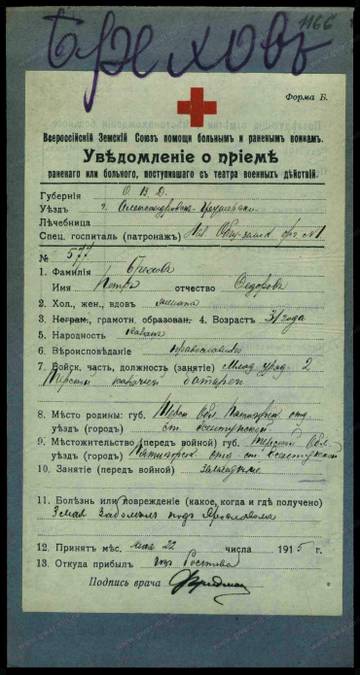 1166
Бреховъ
Форма Б.
Всероссійскій Земскій Союзъ помощи больнымъ и раненымъ воинамъ.
Увѣдомленіе о пріемѣ
раненаго или больного, поступившаго съ театра военныхъ дѣйствій.
Губернія О. В. Д.
Уѣздъ г. Александровск-Грушевск
Лѣчебница
Спец. госпиталь (патронажъ) № 1
№ 577
1. Фамилія Брехова
Имя Петра отчество Федорова
2. Хол., жен., вдовъ
3. Неграм., грамотн. образован. 4. Возрастъ 31 года
5. Народность казакъ
6. Вѣроисповѣданіе православный
7. Войск. часть, должность (занятіе) Млад. уряд. 2
Терской казачьей батареи
8. Мѣсто родины: губ. Обл. Пятигорск. отд.
уѣздъ (городъ) ст.
9. Мѣстожительство (передъ войной) губ. Терской Обл.
уѣздъ (городъ) Пятигорск. отд. ст.
10. Занятіе (передъ войной)
11. Болѣзнь или поврежденіе (какое, когда и гдѣ получено)
подъ Ярославомъ
12. Принятъ мѣс. мая 22 числа 1915 г.
13. Откуда прибылъ изъ Ростова
Подпись врача